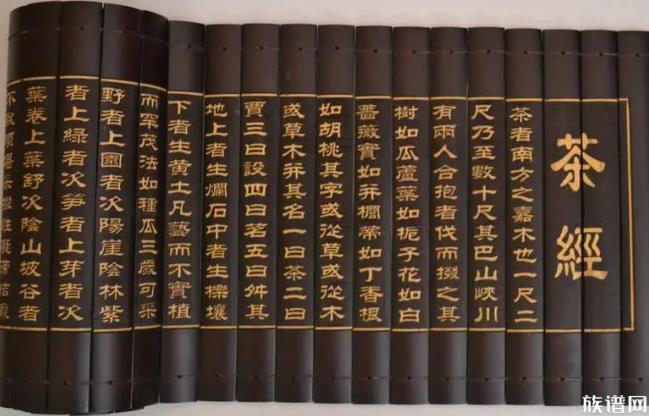 茶經
茶者南方之嘉木也一尺二
尺乃至數十尺其巴山峽川
有兩人合抱者伐而掇之其
樹如瓜蘆葉如梔子花如白
薔薇實如并櫚蒂如丁香根
如胡桃其字或從草或從木
或草木并其名一曰茶二曰
賈三曰設四曰茗五曰舛其
地上者生爛石中者生櫟壤
下者生黃土凡藝而不實植
而罕茂法如種瓜三歲可采
野者上園者次陽崖陰林紫
者上綠者次笋者上芽者次
葉卷上葉舒次陰山坡谷者
性凝滯結瘕
族谱网